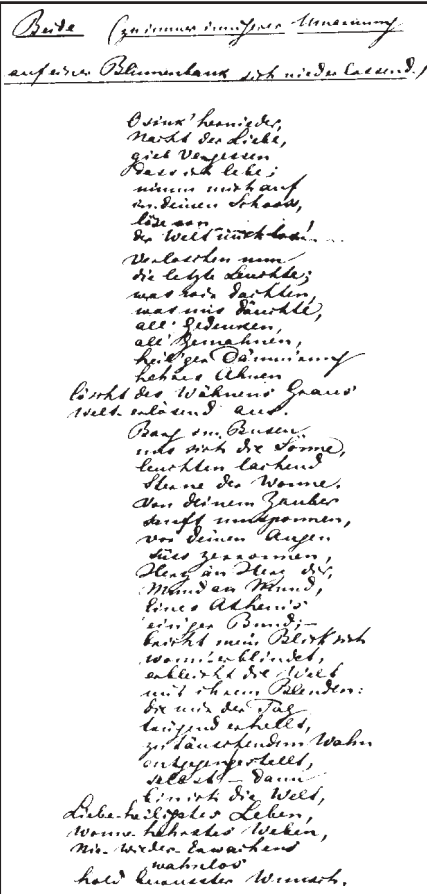 Beide (zu immer innigerer Umarmung
auf einer Blumenbank sich niederlassend.)
O sink' hernieder,
Nacht der Liebe,
gieb Vergessen
dass ich lebe;
nimm mich auf
in deinen Schooss,
löse von
der Welt mich los!
Verloschen nun
die letzte Leuchte;
was wir dachten,
was uns däuchte,
all' Gedenken,
all' Gemahnen,
heil'ger Dämm'rung
hehres Ahnen
löscht des Wähnens Graus
Welt-erlösend aus.
Barg im Busen
uns sich die Sonne,
leuchten lachend
Sterne der Wonne.
Von deinem Zauber
sanft umsponnen,
vor deinen Augen
süss zerronnen,
Herz an Herz dir,
Mund an Mund,
Eines Athems
einiger Bund;—
bricht mein Blick sich
wonn'erblindet,
erbleicht die Welt
mit ihrem Blenden:
die mir der Tag
trügend erhellt,
zu täuschendem Wahn
entgegengestellt,
selbst – dann
bin ich die Welt,
Liebe-heiligstes Leben,
Wonne-hehrstes Weben,
Nie-wieder-Erwachens
wahnlos
hold bewusster Wunsch.